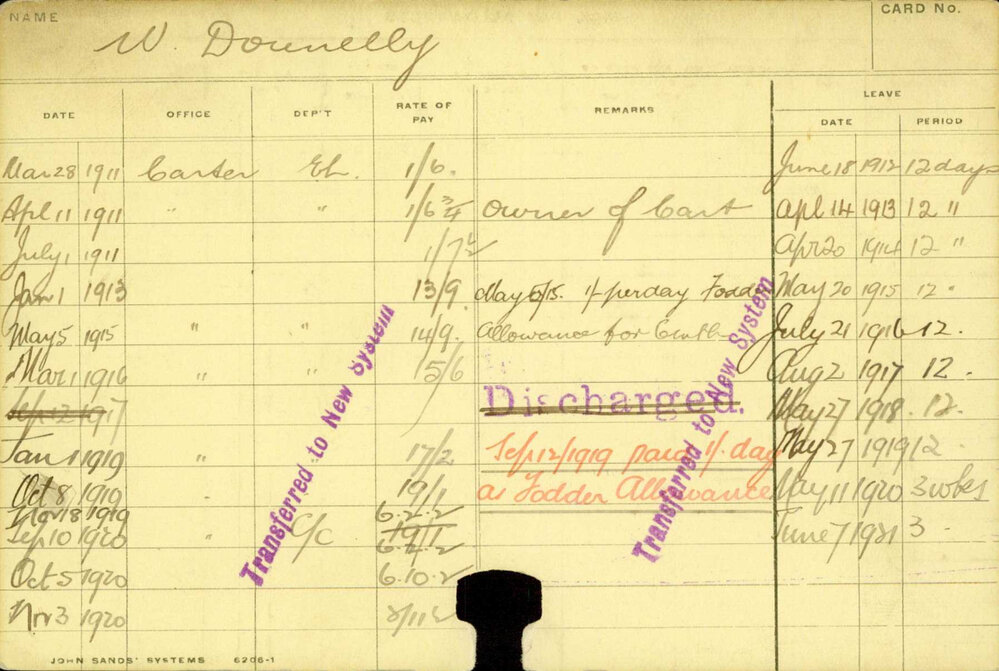 NAME
CARD No.
W. Donnelly
DATE OFFICE DEP'T RATE OF PAY REMARKS LEAVE
DATE PERIOD
Mar 28 1911 Carter El. 1/6. June 18 1912 12 days
Apl 11 1911 " " 1/6¾ Owner of Cart Apl 14 1913 12 "
July 1 1911 1/7½ Apr 20 1914 12 "
Jan 1 1913 13/9 May 5/15. 1/- per day Fodder May 20 1915 12.
May 5 1915 " " 14/9. Allowance for July 21 1916 12.
Mar 1 1916 " " 15/6 Aug 2 1917 12.
1917 Discharged. May 27 1918. 12.
Jan 1 1919 " 17/2 Sep 12/1919 paid 1/- day May 27 1919 12
Oct 8 1919 " 19/1 as Fodder Allowance May 11 1920 3 wks
Nov 18 1919 6.2.2
Sep 10 1920 " C/C 19/1 June 7 1921 3
6.2.2
Oct 5 1920 6.10.2
Nov 3 1920
Transferred to New System
Transferred to New System
JOHN SANDS' SYSTEMS 6206-1